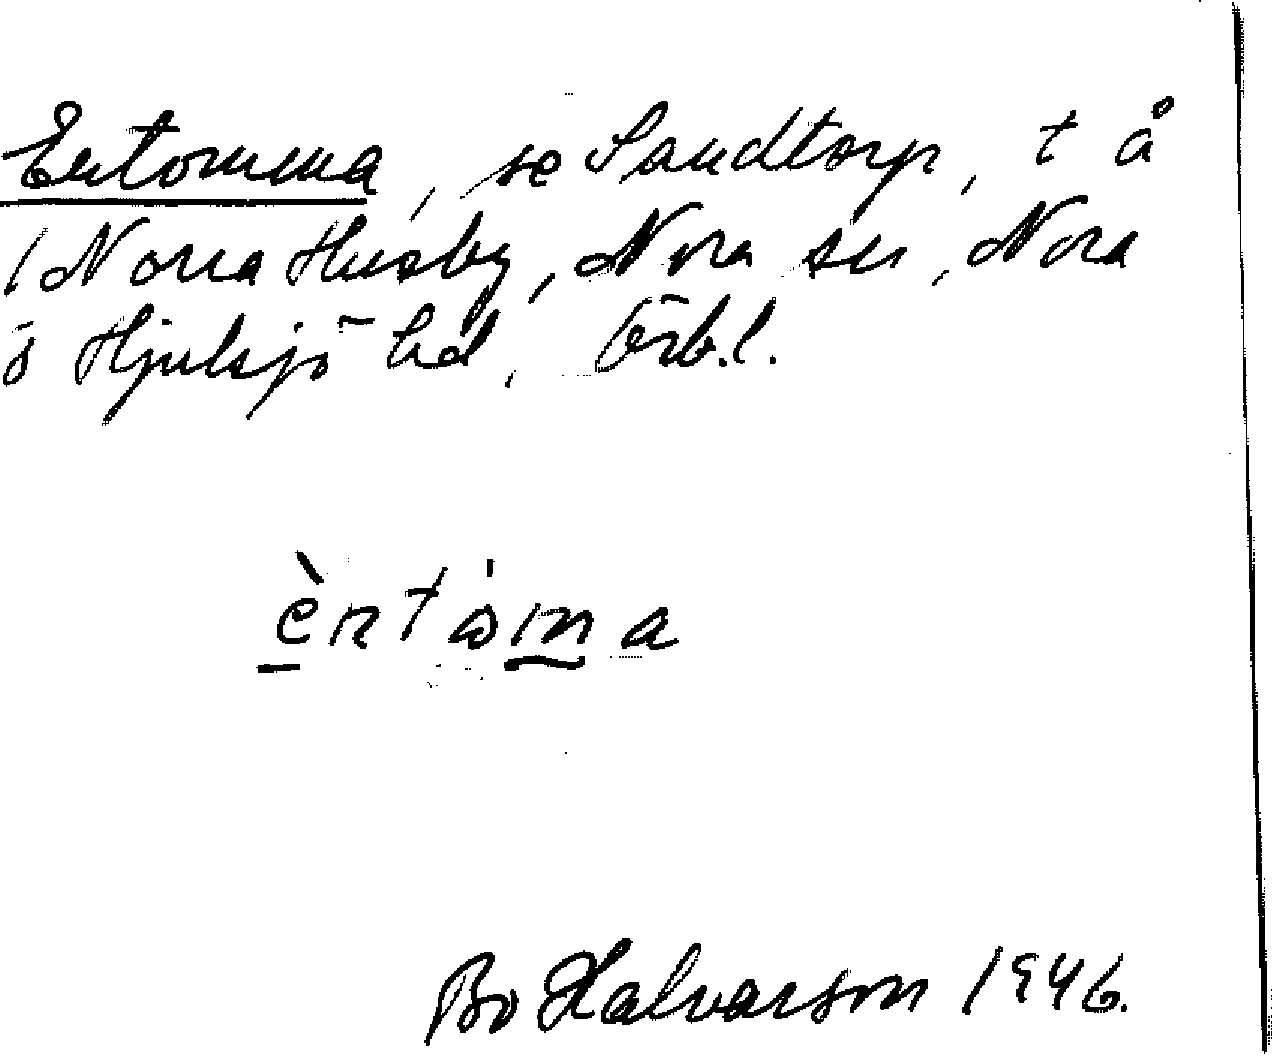 Entomma, se Sandtorp, t å
/ Norra Husby, Nora sn, Nora
o Hjulsjö hd, Örb.l.
èntȧma
Bo Halvarson 1946.